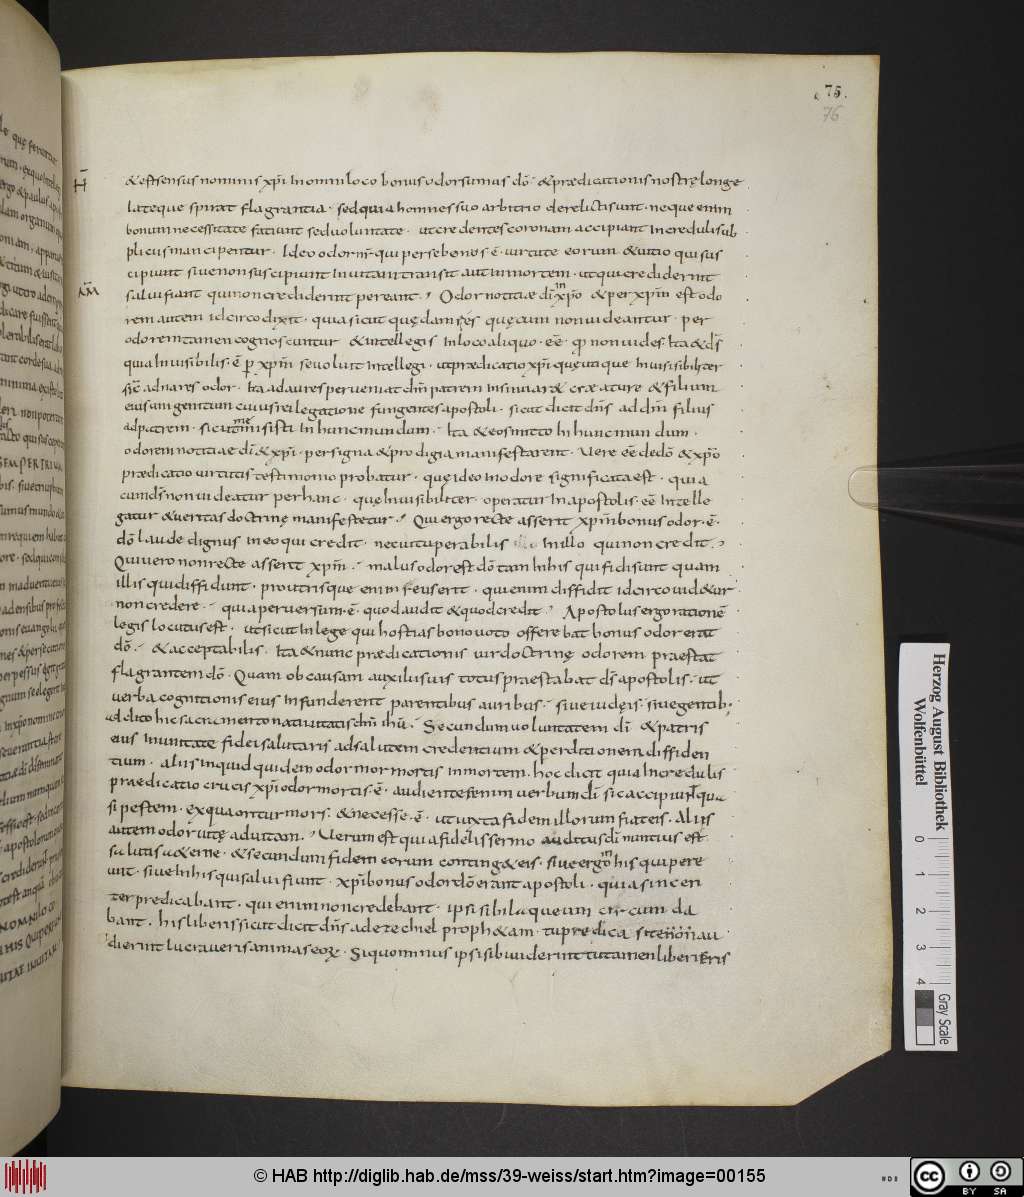 75.
76
& est sensus nominis xp̄i In omni loco bonus odor sumus dō · & prædicationis nostrę longe
lateque spirat flagrantia · sed quia homines suo arbitrio derelicti sunt · neque enim
bonum necessitate faciunt sed voluntate · ut credentes coronam accipiant Increduli sub
pliciis mancipentur · Ideo odor nr̄ qui per se bonus ē · virtute eorum & vitio qui sus
cipiunt sive non suscipiunt In vitam transit aut in mortem · ut qui crediderint
salvi fiant qui non crediderint pereant · Odor notitiæ dī in xp̄o & per xp̄m est odo
rem autem idcirco dixit · quia sicut quędam res quę cum non videantur · per
odorem tamen cognoscuntur & intellegis In loco aliquo · eē qđ non vides · Ita & dс̄
quia Invisibilis · ē p xp̄m se voluit Intellegi · ut prædicatio xp̄i quęcumque Invisibiliter
sic̄ ad nares odor · Ita ad aures perveniat dm̄ patrem Insinuar& creature & filium
eius unigenitum cuius rei legatione fungentes apostoli · sicut dicit dn̄s ad dm̄ filius
ad patrem · sicut me misisti In hunc mundum · Ita & eos mitto In hunc mundum ·
odorem notitiae dī & xp̄i · per signa & prodigia manifestarent · Vere eē de dō & xp̄o
prædicatio virtutis testimonio probatur · quę ideo In odore significata est · quia
cum ds̄ non videatur per hanc · quę Invisibiliter operatur In apostolis · eē Intelle
gatur & veritas doctrinę manifestetur · Qui ergo recte asserit xp̄m bonus odor · ē ·
dō laude dignus in eo qui credit · nec vituperabilis In illo qui non credit ·
Qui vero non recte asserit xp̄m · malus odor est dō tam In his qui fidi sunt quam
illis qui diffidunt · pro utrisque enim fefuserit · qui enim diffidit idcirco vid&ur
non credere · quia perversum · ē · quod audit & quod credit · Apostolus ergo rationē
legis locutus est · ut sicut In lege qui hostias bono voto offerebat bonus odor erat
dō · & acceptabilis · Ita & nunc prædicationis vir doctrinę odorem praestat
flagrantem dō · Quam ob causam auxilii sui totus praestabat ds̄ apostolis · ut
verba cognitionis eius Infunderent parentibus auribus · sive iudęis · sive gentib;
addito hic sacramento nativitatis dn̄i ihū · Secundum voluntatem dī & patris
eius In unitate fidei salutaris ad salutem credentium & perditionem diffiden
tium · aliis inquid quidem odor mortis in mortem · hoc dicit quia Incredulis
praedicatio crucis xp̄i odor mortis · ē · audientes enim verbum dī sic accipiunt qua
si pestem · ex qua oritur mors · & necesse · ē · ut iuxta fidem illorum fiat eis · Aliis
autem odor vitę ad vitam · Verum est quia fidelis sermo auditus dī nuntius est
salutis aeternę · & secundum fidem eorum conting& eis · sive ergo In his qui pere
unt · sive In his qui salvi fiunt · xp̄i bonus odor dō erant apostoli · quia sincen
ter predicabant · qui enim non credebant · ipsi sibi laqueum circumda
bant · his liberis sicut dicit dn̄s ad ezechiel proph&am · tu predica si te non au
dierint lucraveris animas eoꝝ · Si quominus ipsi sibi viderint tu tamen liber eris
Herzog August Bibliothek
Wolfenbüttel
0 1 2 3 4
Gray Scale
© HAB http://diglib.hab.de/mss/39-weiss/start.htm?image=00155
cc BY SA